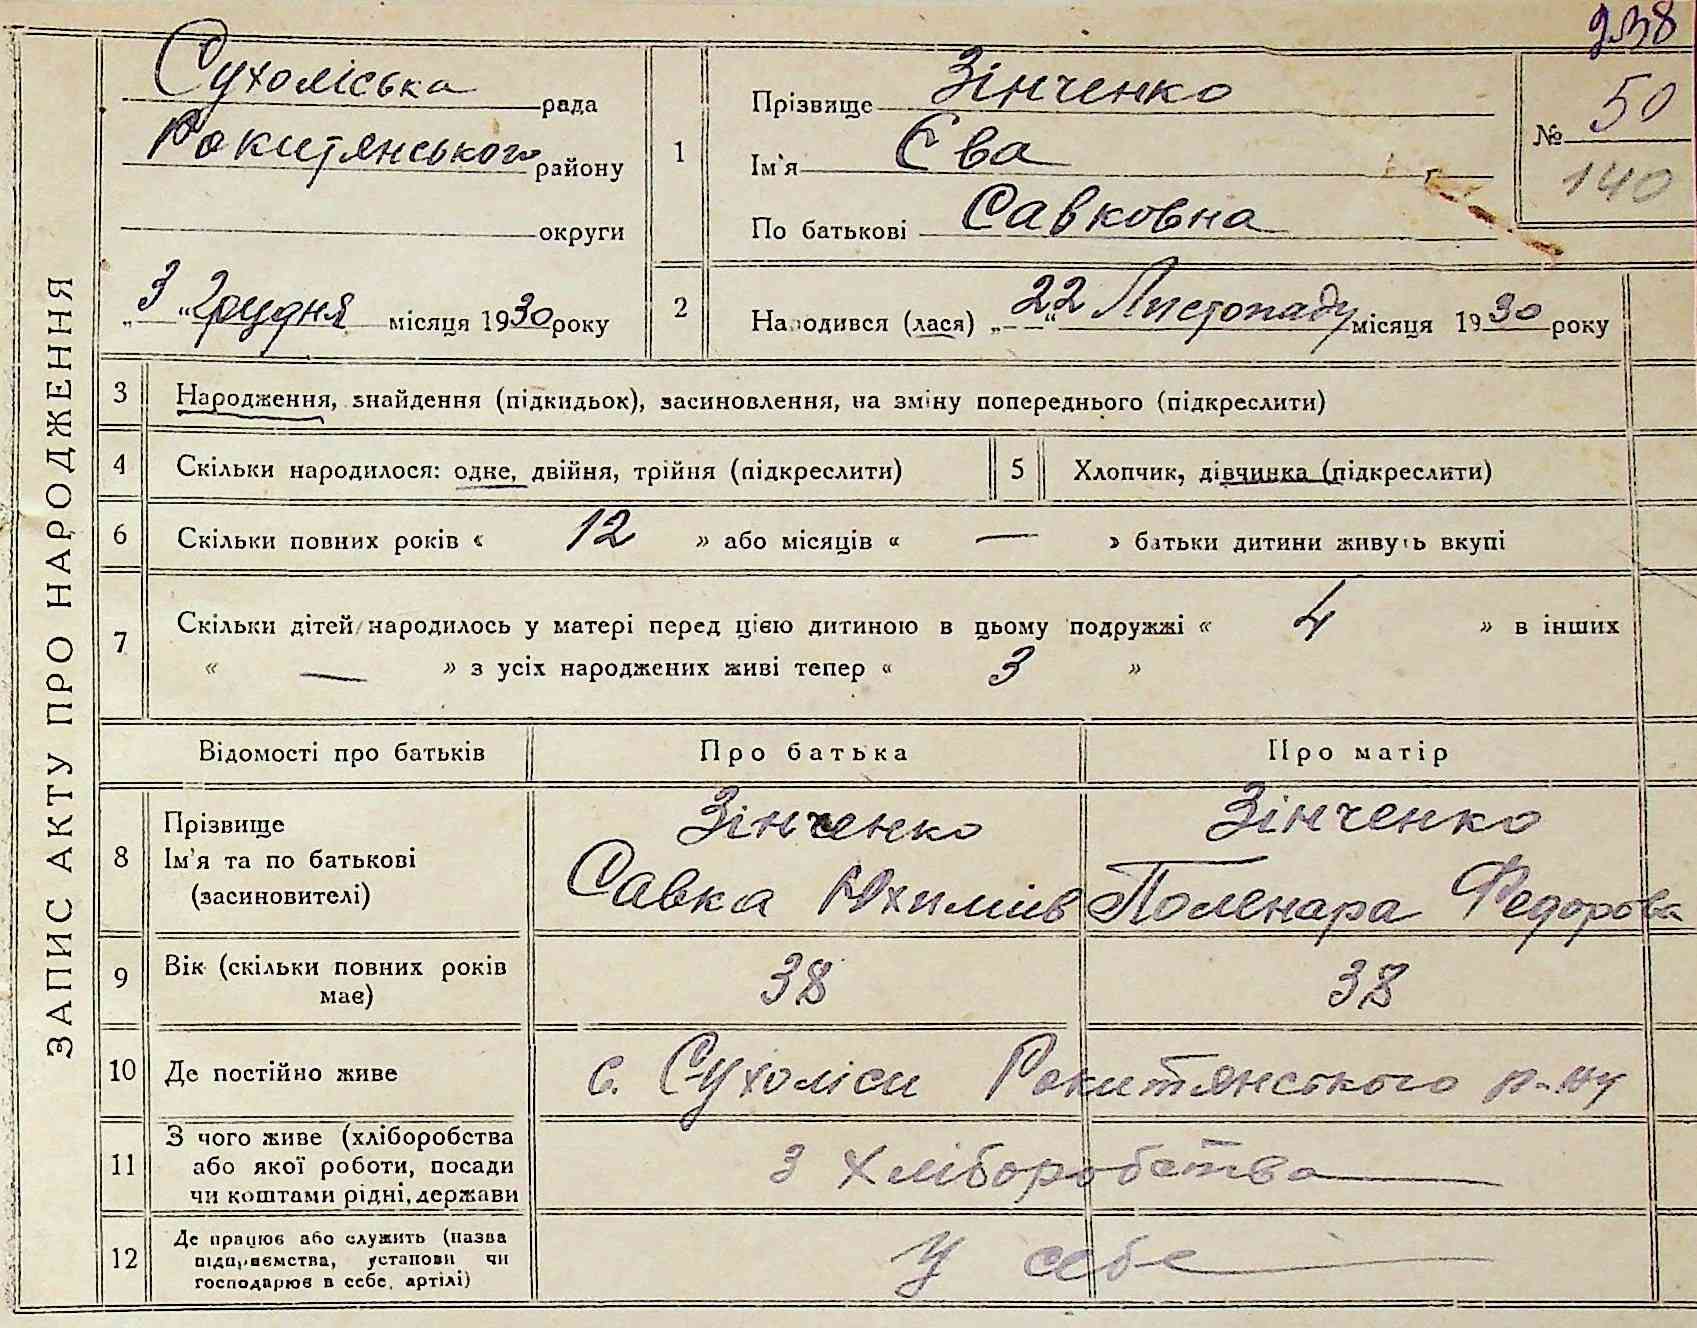 238
Сухоліська рада
Рокитянського району
округи
„3“ Грудня місяця 1930 року
1
Прізвище Зінченко
Ім'я Єва
По батькові Савковна
№ 50
140
2
Народився (лася) „22“ Листопаду місяця 1930 року
ЗАПИС АКТУ ПРО НАРОДЖЕННЯ
3 Народження, знайдення (підкидьок), засиновлення, на зміну попереднього (підкреслити)
4 Скільки народилося: одне, двійня, трійня (підкреслити) 5 Хлопчик, дівчинка (підкреслити)
6 Скільки повних років « 12 » або місяців « — » батьки дитини живуть вкупі
7 Скільки дітей народилось у матері перед цією дитиною в цьому подружжі « 4 » в інших
« — » з усіх народжених живі тепер « 3 »
Відомості про батьків Про батька Про матір
8 Прізвище
Ім'я та по батькові
(засиновителі)
Зінченко
Савка Юхимів
Зінченко
Поленара Федорова
9 Вік (скільки повних років
має)
38 38
10 Де постійно живе с. Сухоліси Рокитянського р-ну
11 З чого живе (хліборобства
або якої роботи, посади
чи коштами рідні, держави
З хліборобства
12 Де працює або служить (назва
підприємства, установи чи
господарює в себе, артілі)
У себе